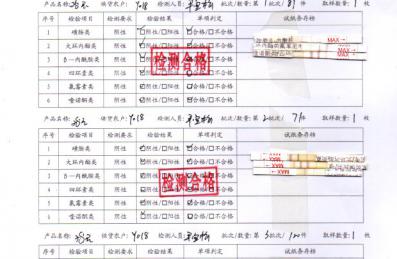 产品名称: 供货农户: Y018 检测人员: 批次/数量: 第 批次/ 取样数量: 1 枚
序号 检验项目 检测要求 检验结果 单项判定 试纸条存档
1 磺胺类 阴性 ☑阴性/□阳性 ☑合格/□不合格
2 大环内酯类 阴性 ☑阴性/□阳性 ☑合格/□不合格
3 B-一内酰胺类 阴性 ☑阴性/□阳性 ☑合格/□不合格
4 四环素类 阴性 ☑阴性/□阳性 ☑合格/□不合格
5 氟霉素类 阴性 ☑阴性/□阳性 ☑合格/□不合格
6 喹诺酮类 阴性 ☑阴性/□阳性 ☑合格/□不合格
检测合格
MAX
MAX
产品名称: 供货农户: Y018 检测人员: 批次/数量: 第 2 批次/ 取样数量: 1 枚
序号 检验项目 检测要求 检验结果 单项判定 试纸条存档
1 磺胺类 阴性 ☑阴性/□阳性 ☑合格/□不合格
2 大环内酯类 阴性 ☑阴性/□阳性 ☑合格/□不合格
3 B-一内酰胺类 阴性 ☑阴性/□阳性 ☑合格/□不合格
4 四环素类 阴性 ☑阴性/□阳性 ☑合格/□不合格
5 氟霉素类 阴性 ☑阴性/□阳性 ☑合格/□不合格
6 喹诺酮类 阴性 ☑阴性/□阳性 ☑合格/□不合格
检测合格
MAX
MAX
产品名称: 供货农户: Y018 检测人员: 批次/数量: 第 3 批次/ 取样数量: 1 枚
序号 检验项目 检测要求 检验结果 单项判定 试纸条存档